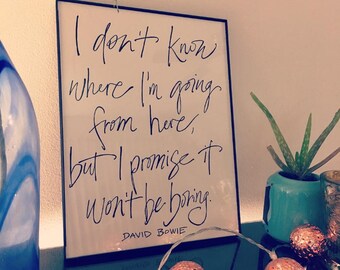 I don't know
where I'm going
from here,
but I promise it
won't be boring.
DAVID BOWIE